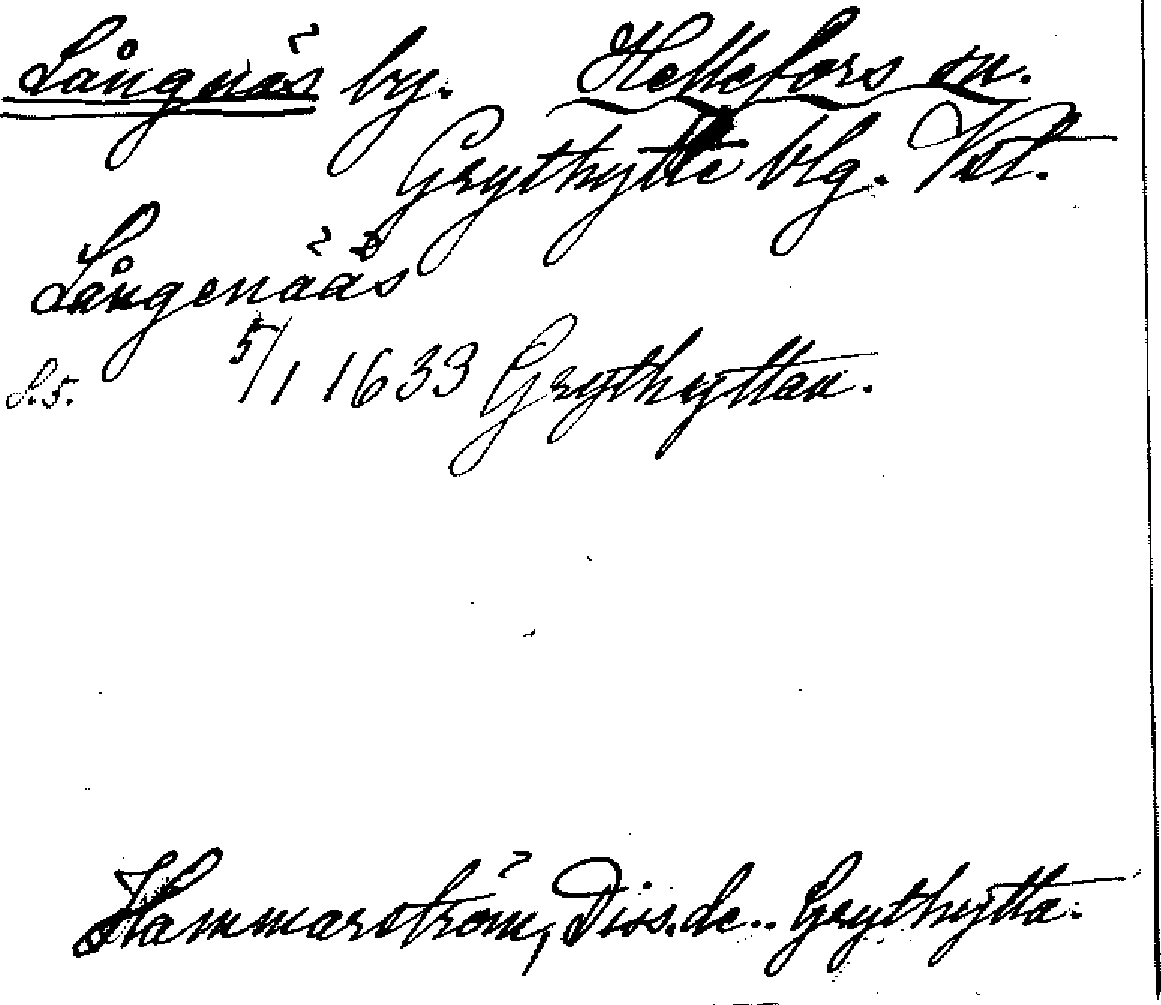 Långnäs by. Hellefors sn.
Grythytte blg. Vstl.
Långenääs
S.5. 5/1 1633 Grythyttan.
Hammarström, Diss. de.. Grythytta.